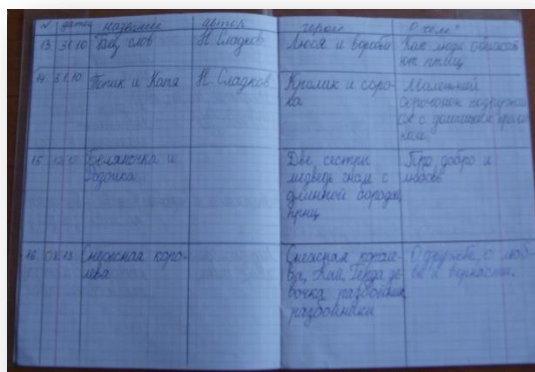 название автор герои О чем?
13. 31.10 Без слов Н. Сладков. Люси и воробьи Как люди спасают
ют птиц
14. 31.10 Топик и Катя Н. Сладков Кролик и соро-
ка Маленький
сорочонок подружил
ся с домашним кроли
ком.
15. Беляночка и
Розочка Две сестры
медведь гном с
длинной бородой
принц Про добро и
любовь
16. Снежная коро-
лева Снежная короле
ва, Кай, Герда де
вочка разбойник
разбойники О дружбе, о люб
ви и верности.